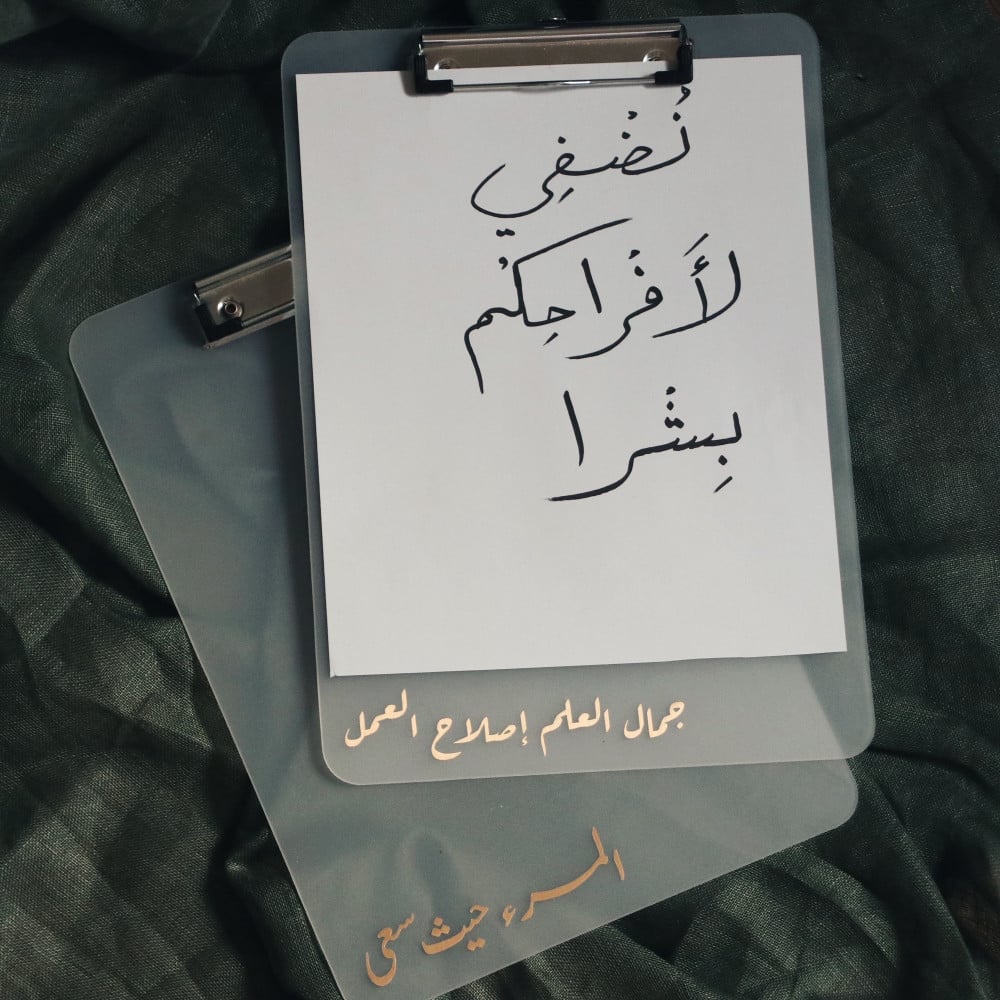 نُضْفِي
لأَفْراحِكُم
بِشْرا
جمال العلم إصلاح العمل
المرء حيث سعى